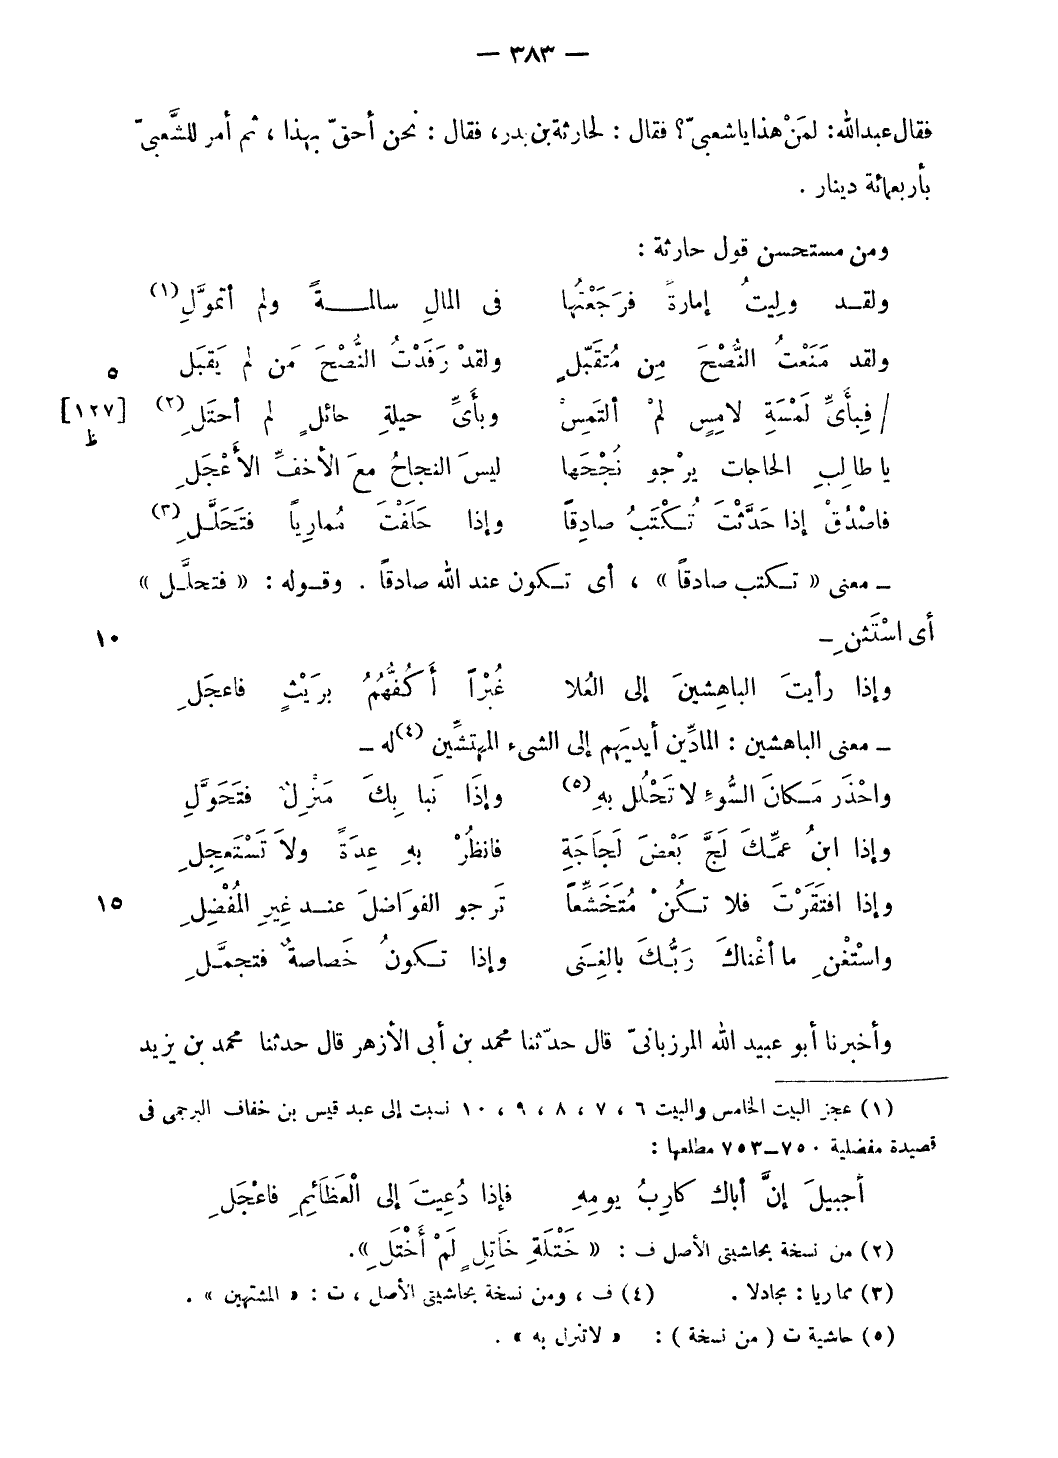 — ٣٨٣ —
فقال عبدالله: لمَنْ هذا ياشعبىّ؟ فقال : لحارثة بن بدر، فقال : نحن أحقّ بهذا ، ثم أمر للشَّعبىّ
بأربعمائة دينار .
ومن مستحسن قول حارثة :
ولقـد وليتُ إمارةً فرَجَعْتُها فى المالِ سالمـــةً ولم أتموَّلِ(١)
ولقد مَنَعْتُ النُّصْحَ مِن مُتقَبّلٍ ولقدْ رَفَدْتُ النُّصْحَ مَن لم يَقبَل ٥
/ فبِأَىِّ لَمْسَةِ لامِسٍ لمْ ألتَمِسْ وبأَىِّ حيلةِ حائلٍ لم أحتَلِ(٢) [١٢٧ ظ]
يا طالِبِ الحاجات يرْجو نُجْحَها ليسَ النجاحُ معَ الأخفِّ الأَعْجَلِ
فاصْدُقْ إذا حَدَّثْتَ تُـكْتَبُ صادِقاً وإذا حَلَفْتَ مُمارِياً فتَحَلَّـلِ(٣)
ـ معنى « تـكتب صادقاً » ، أى تـكون عند الله صادقاً . وقـوله : « فتحلَّـل »
أى اسْتَثنِ ـ ١٠
وإذا رأيتَ الباهِشينَ إلى العُلا غُبْراً أَكُفُّهُمُ برَيْثٍ فاعجَلِ
ـ معنى الباهشين : المادِّين أيديَهم إلى الشىء المهتشِّين (٤)له ـ
واحْذَر مَـكانَ السُّوءِ لا تَحْلُل بهِ(٥) وإذَا نَبا بِكَ مَنْزِلٌ فتَحَوَّلِ
وإذا ابنُ عمِّـكَ لَجَّ بَعْضَ لَجَاجَةِ فانظُرْ بهِ عِدَةً ولاَ تَسْتَعجِلِ
وإذا افتَقَرْتَ فلا تـكُنْ مُتَخَشِّعاً تَرجو الفوَاضلَ عنـد غِيرِ المُفْضِلِ ١٥
واسْتَغْنِ ما أغْناكَ رَبُّـكَ بالغِنَى وإذا تـكونُ خَصاصةٌ فتجمَّـلِ
وأخبرنا أبو عبيد الله المرزبانىّ قال حدّثنا محمد بن أبى الأزهر قال حدثنا محمد بن يزيد
(١) عجز البيت الخامس والبيت ٦ ، ٧ ، ٨ ، ٩ ، ١٠ نسبت إلى عبد قيس بن خفاف البرجمى فى
قصيدة مفضلية ٧٥٠ـ٧٥٣ مطلعها :
أجبيلَ إنَّ أباك كارِبُ يومِهِ فإذا دُعِيتَ إلى الْعَظَائِمِ فاعْجَلِ
(٢) من نسخة بحاشيتى الأصل ف : « خَتْلَةِ خَاتِلٍ لَمْ أَخْتَلِ ».
(٣) مماريا : مجادلا . (٤) ف ، ومن نسخة بحاشيتى الأصل ، ت : « المشتهين » .
(٥) حاشية ت ( من نسخة ) : « لاتنزل به » .